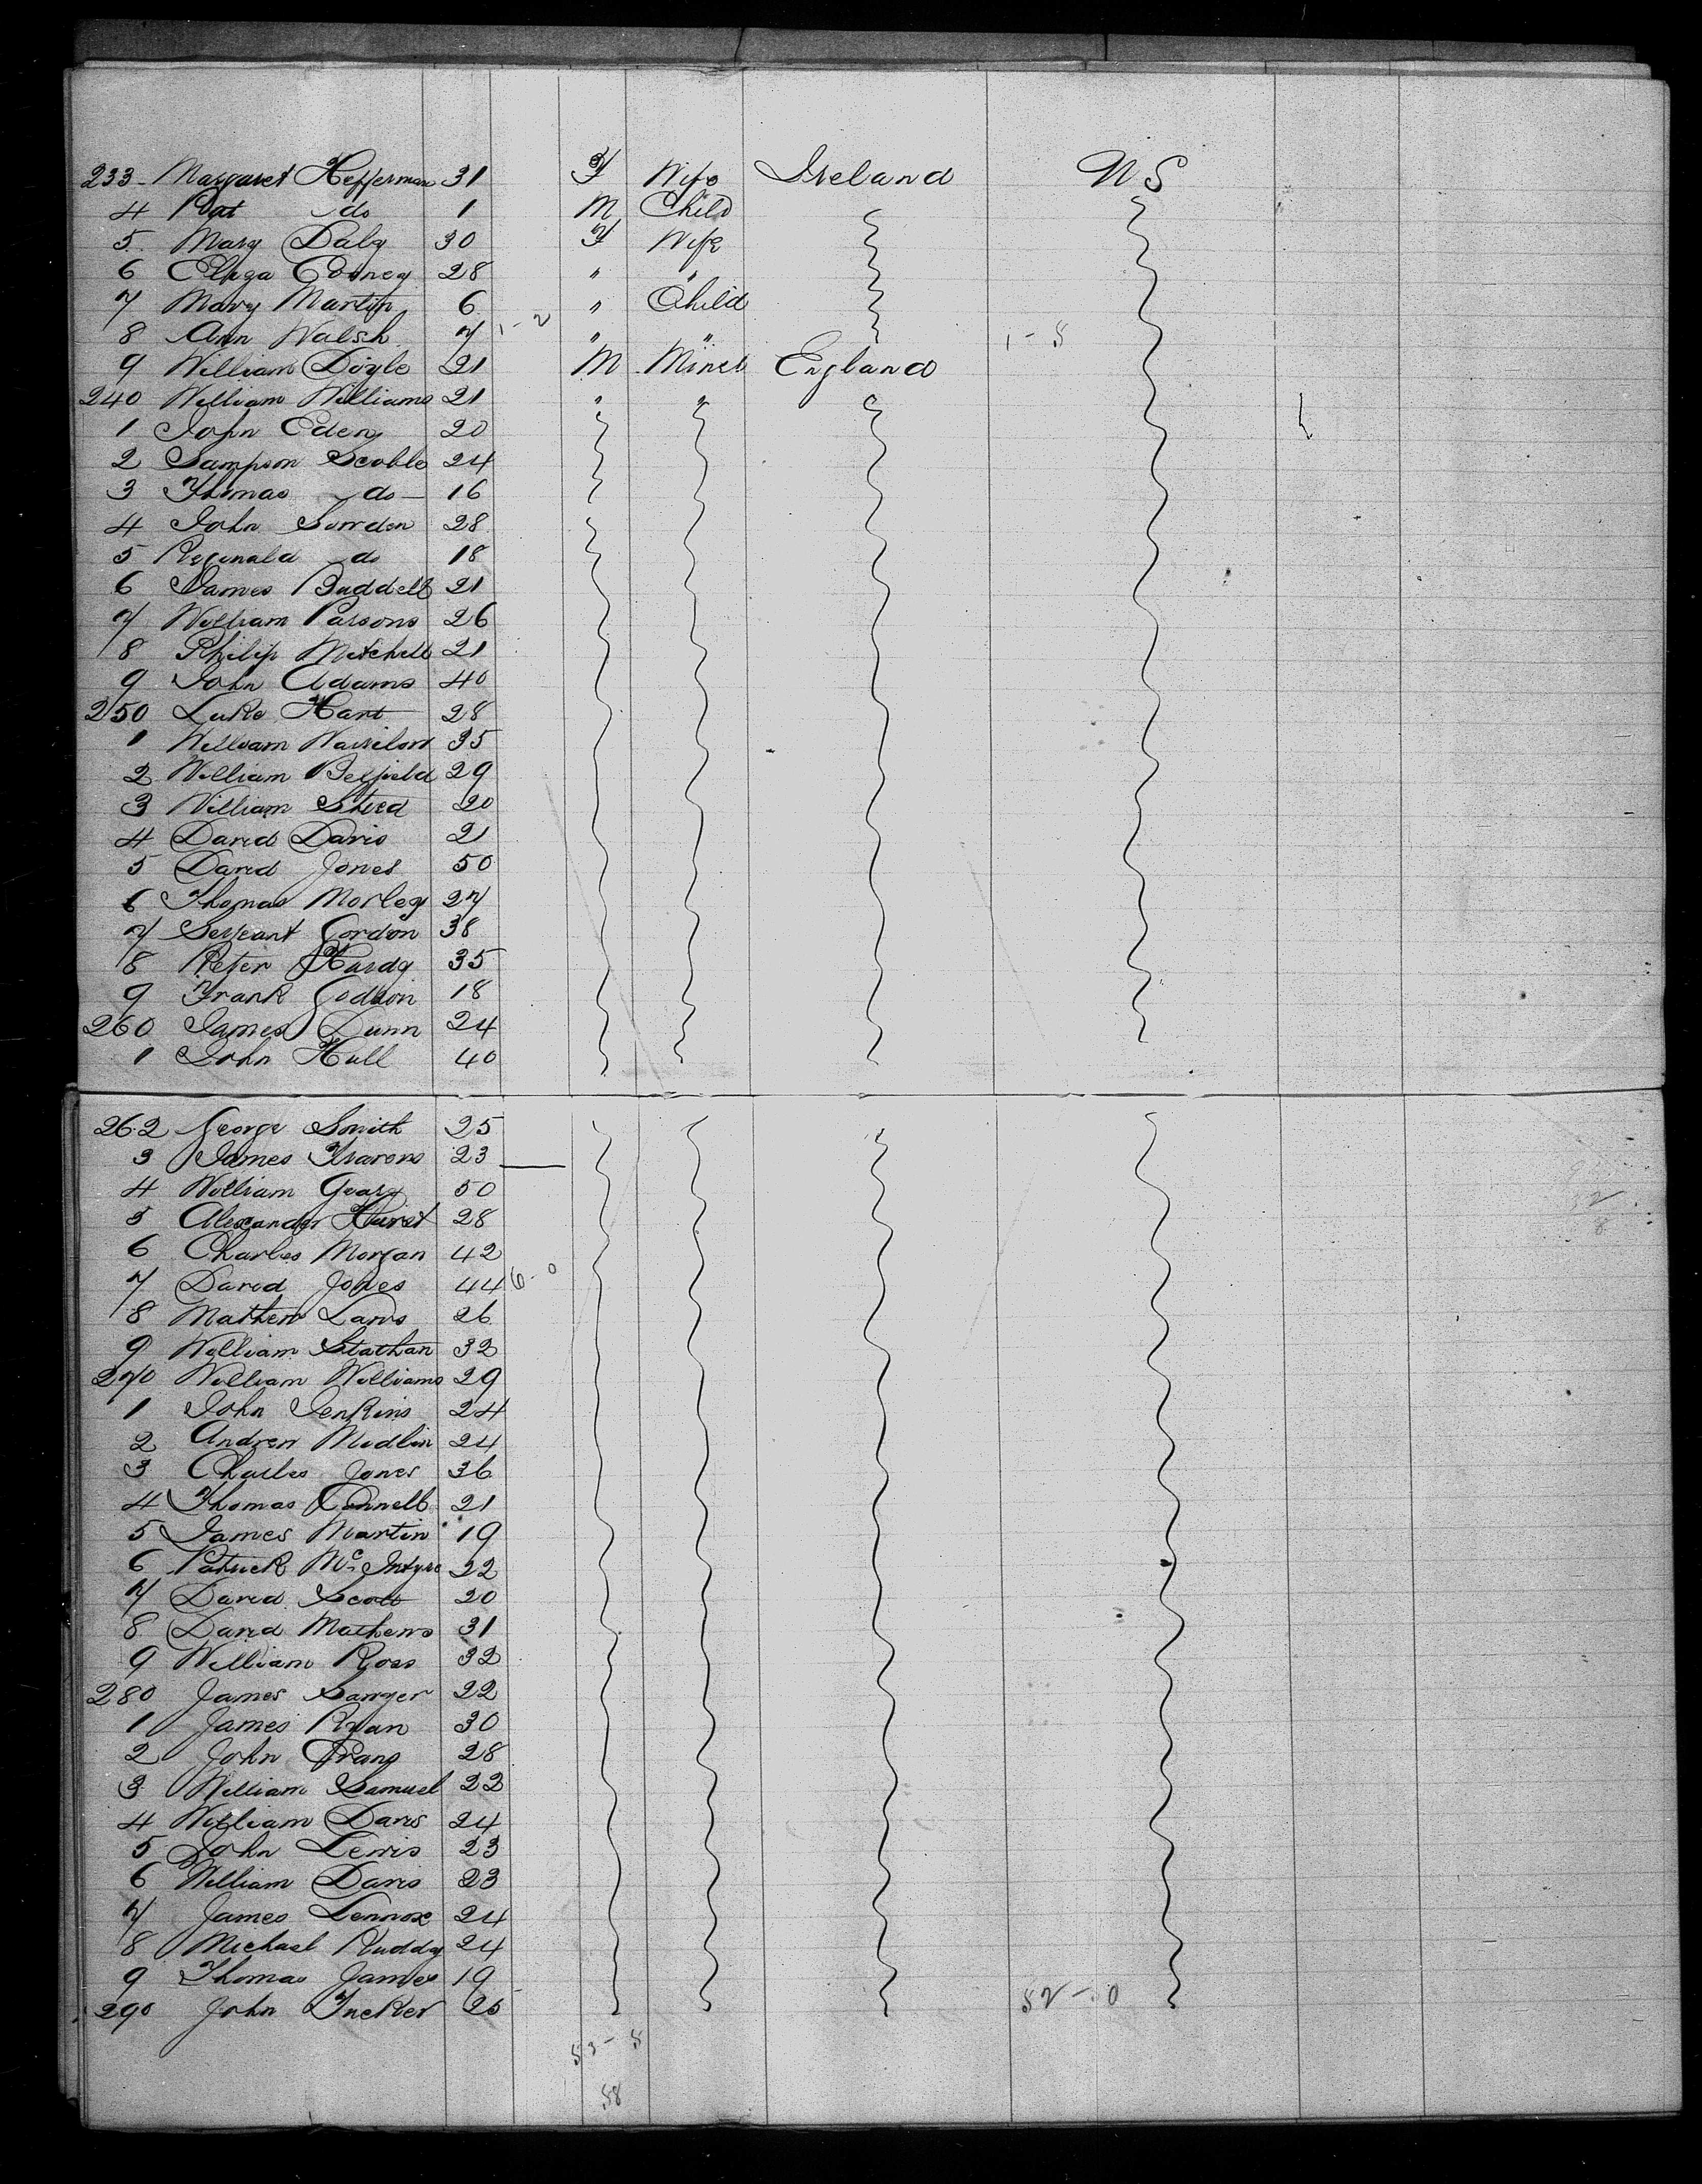 233 Margaret Hefferman 31 F Wife Ireland US
4 Pat do 1 M Child
5 Mary Daly 30 F Wife
6 Eliza Cooney 28 " "
7 Mary Martin 6 " Child
8 Ann Walsh 7 1-2 " " 1-8
9 William Doyle 21 M Miner England
240 William Williams 21 " "
1 John Eden 20
2 Sampson Scoble 24
3 Thomas do 16
4 John Sowden 28
5 Reginald do 18
6 James Buddell 21
7 William Parsons 26
8 Philip Mitchell 21
9 John Adams 40
250 Luke Hart 28
1 William 35
2 William Belfield 29
3 William Steed 20
4 David Davis 21
5 David Jones 50
6 Thomas Morley 27
7 Serjeant Gordon 38
8 Peter Hardy 35
9 Frank Godson 18
260 James Dunn 24
1 John Hull 40
262 George Smith 25
3 James 23
4 William Geary 50
5 Alexander Hurst 28
6 Charles Morgan 42
7 David Jones 44 6-0
8 Mathew Laws 26
9 William Stathan 32
270 William Williams 29
1 John Jenkins 24
2 Andrew Medlin 24
3 Charles Jones 36
4 Thomas Connell 21
5 James Martin 19
6 Patrick McIntyre 22
7 David Scott 20
8 David Mathews 31
9 William Ross 32
280 James Sawyer 22
1 James Ryan 30
2 John 28
3 William Samuel 22
4 William Davis 24
5 John Lewis 23
6 William Davis 23
7 James Lennox 24
8 Michael Ruddy 24
9 Thomas James 19
290 John Tucker 25 52-0
53-8
58